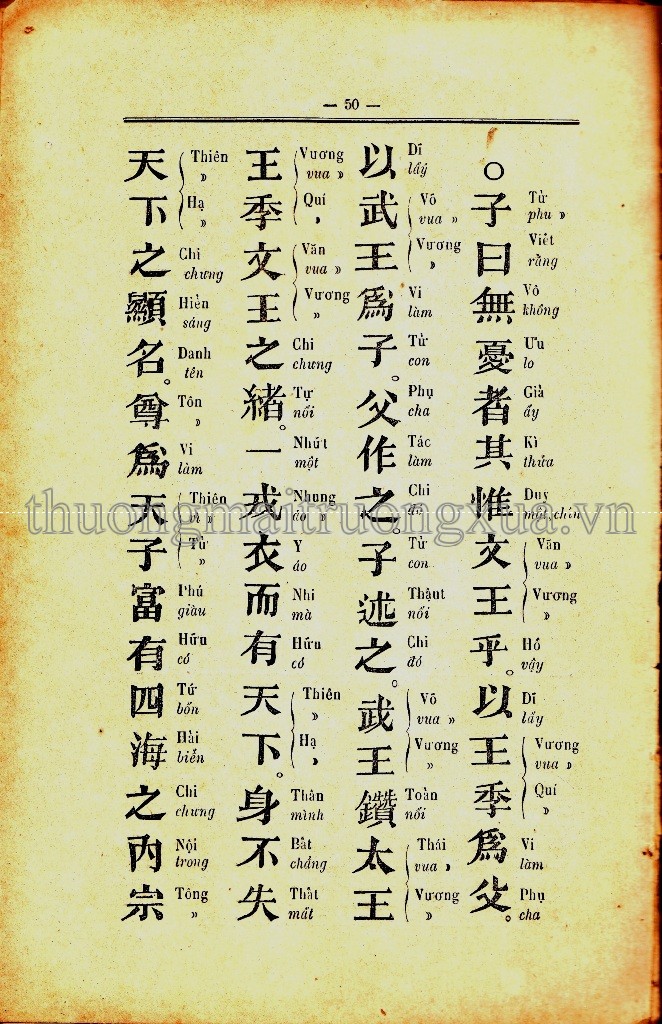 — 50 —
○子曰無憂者其惟文王乎。以王季爲父。
Tử
phu »
Viết
rằng
Vô
không
Ưu
lo
Giả
ấy
Kì
thửa
Duy
Văn
vua »
Vương
»
Hồ
vậy
Dĩ
lấy
Vương
vua »
Quí
»
Vi
làm
Phụ
cha
以武王爲子。父作之。子述之。武王鑽太王
Dĩ
lấy
Võ
vua »
Vương
»
Vi
làm
Tử
con
Phụ
cha
Tác
làm
Chi
đó
Tử
con
Thậut
nối
Chi
đó
Võ
vua »
Vương
»
Toản
nối
Thái
vua »
Vương
»
王季文王之緒。一戎衣而有天下。身不失
Vương
vua »
Quí
»
Văn
vua »
Vương
»
Chi
chưng
Tự
nối
Nhứt
một
Nhung
áo »
Y
áo
Nhi
mà
Hữu
có
Thiên
»
Hạ
»
Thân
mình
Bất
chẳng
Thất
mất
天下之顯名。尊爲天子富有四海之內宗
Thiên
»
Hạ
»
Chi
chưng
Hiển
sáng
Danh
tên
Tôn
»
Vi
làm
Thiên
Tử
»
Phú
giàu
Hữu
có
Tứ
bốn
Hải
biển
Chi
chưng
Nội
trong
Tông
»
thuongmaitruongxua.vn